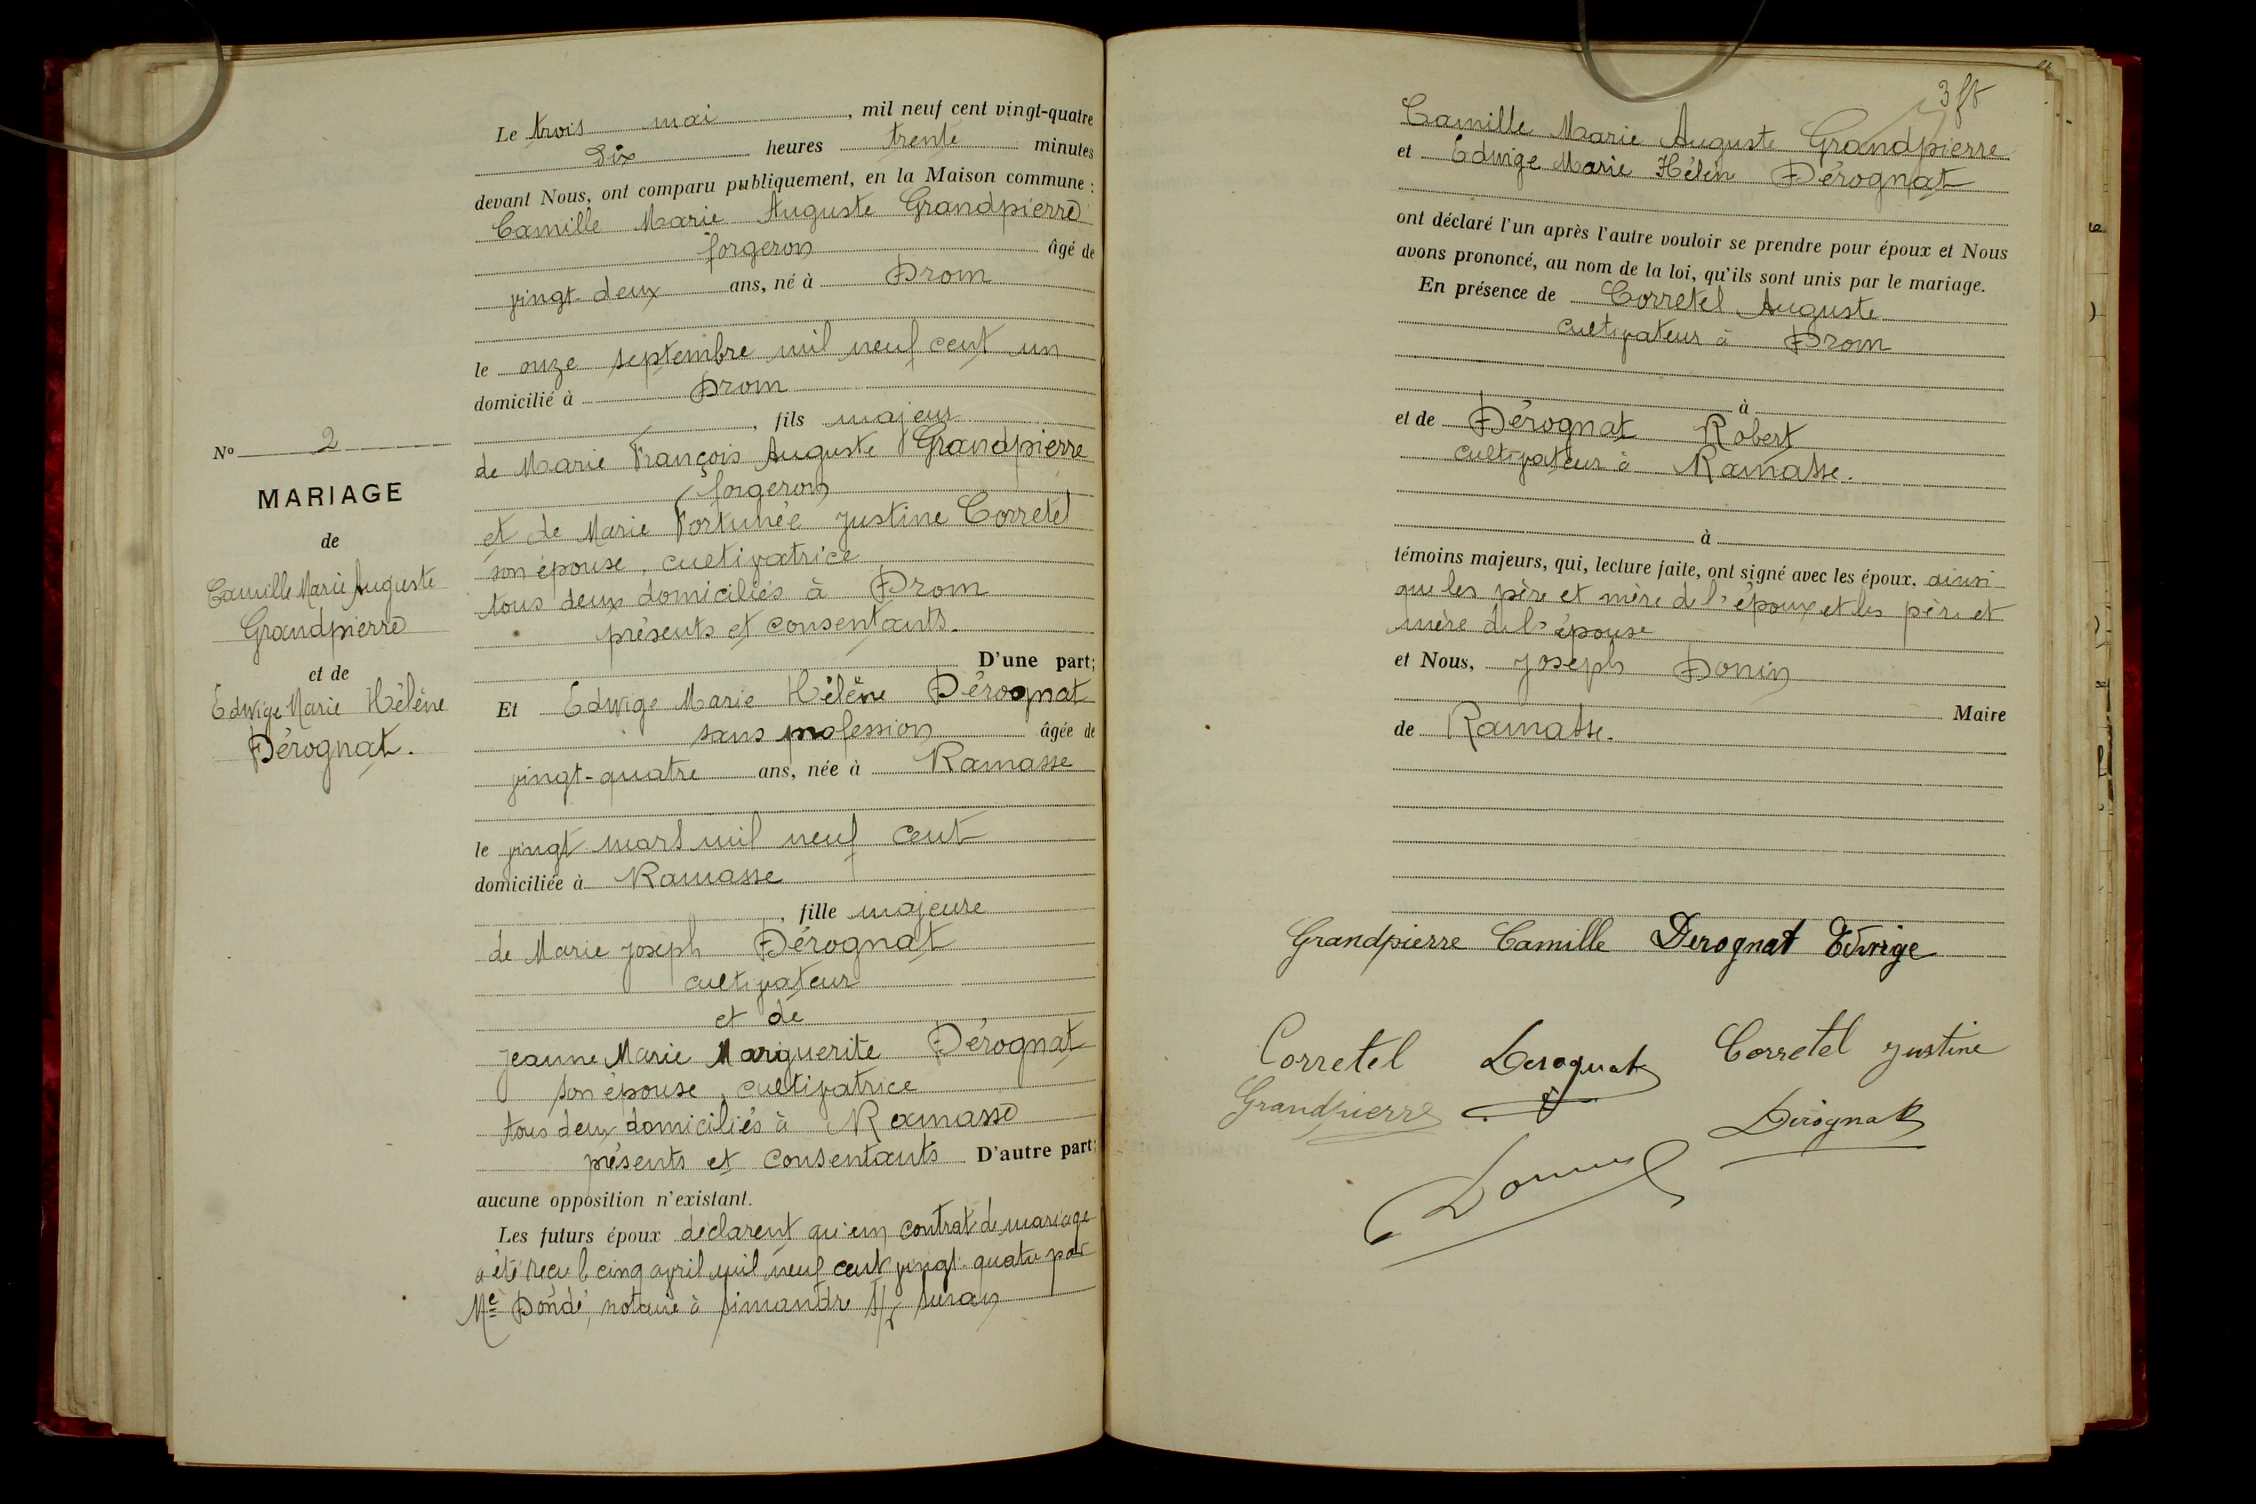 Nº 2
MARIAGE
de
Camille Marie Auguste
Grandpierre
et de
Edwige Marie Hélène
Dérognat.
Le trois mai, mil neuf cent vingt-quatre
Dix heures trente minutes
devant Nous, ont comparu publiquement, en la Maison commune :
Camille Marie Auguste Grandpierre
forgeron âgé de
vingt-deux ans, né à Drom
le onze septembre mil neuf cent un
domicilié à Drom
, fils majeur
de Marie François Auguste Grandpierre
forgeron
et de Marie Fortunée Justine Corretel
son épouse, cultivatrice
tous deux domiciliés à Drom
présents et consentants.
D'une part;
Et Edwige Marie Hélène Dérognat
sans profession âgée de
vingt-quatre ans, née à Ramasse
le vingt mars mil neuf cent
domiciliée à Ramasse
, fille majeure
de Marie Joseph Dérognat
cultivateur
et de
Jeanne Marie Marguerite Dérognat
son épouse, cultivatrice
tous deux domiciliés à Ramasse
présents et consentants D'autre part;
aucune opposition n'existant.
Les futurs époux déclarent qu'un contrat de mariage
a été reçu le cinq avril mil neuf cent vingt-quatre par
Me Dondé, notaire à Simandre s/r Suran
3 ff
Camille Marie Auguste Grandpierre
et Edwige Marie Hélèn Dérognat
ont déclaré l'un après l'autre vouloir se prendre pour époux et Nous
avons prononcé, au nom de la loi, qu'ils sont unis par le mariage.
En présence de Corretel Auguste
cultivateur à Drom
à
et de Dérognat Robert
cultivateur à Ramasse.
à
témoins majeurs, qui, lecture faite, ont signé avec les époux. ainsi
que les père et mère de l'époux et les père et
mère de l'épouse
et Nous, Joseph Donin
Maire
de Ramasse.
Grandpierre Camille Derognat Edwige
Corretel Derognat Corretel Justine
Grandpierre Dérognat
Donin